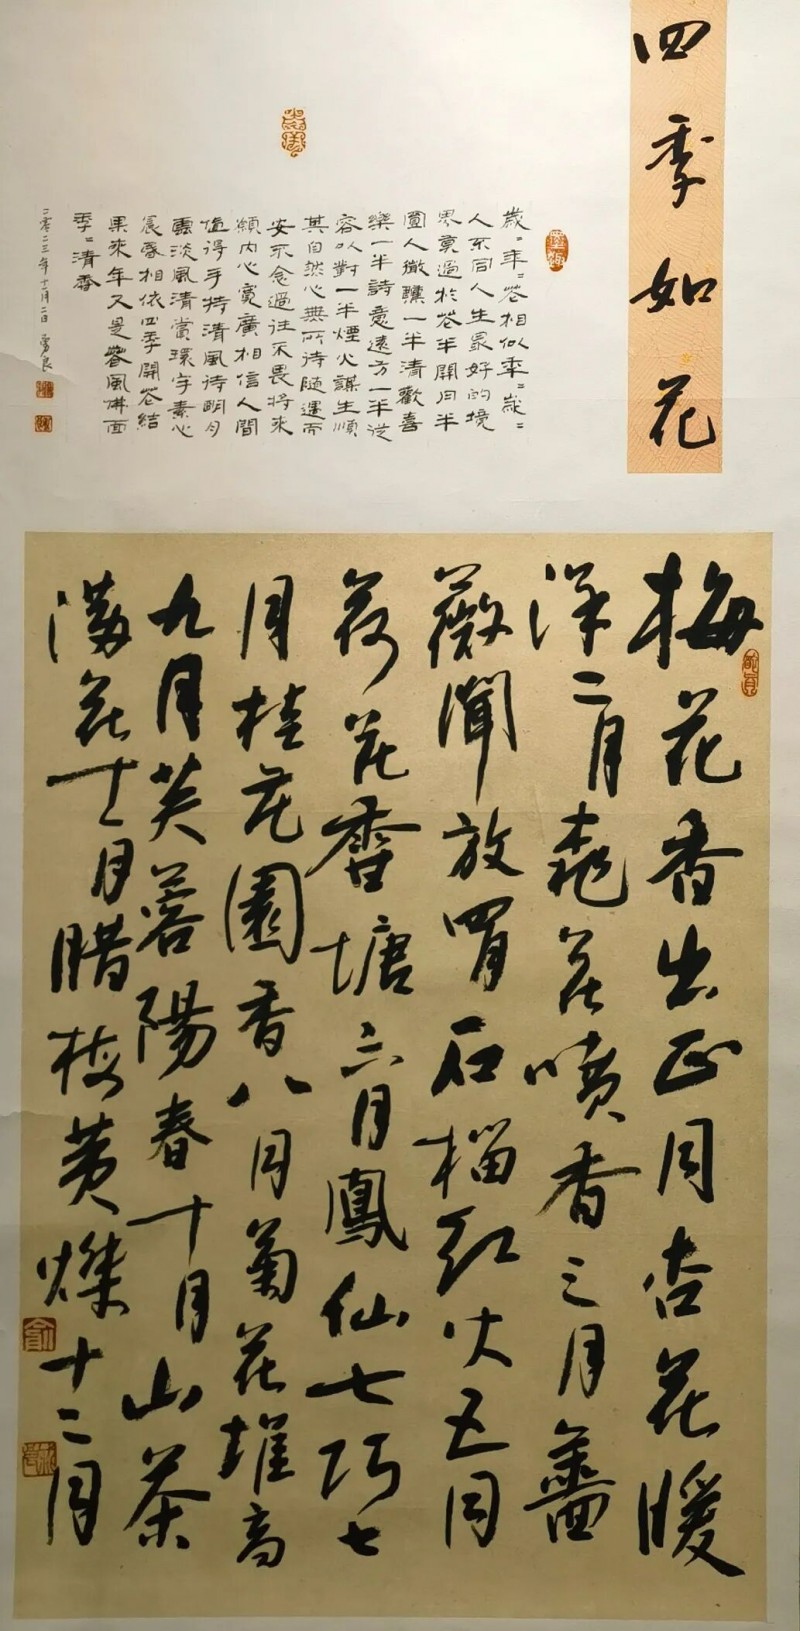 四季如花
歲=年=花相似年=歲=
人不同人生最好的境
界莫過於花半開月半
圓人微醺一半清歡喜
樂一半詩意遠方一半從
容以對一半煙火謀生順
其自然心無所待随遇而
安不念過往不畏將來
傾內心寬廣相信人間
值得手持清風待明月
雲淡風清當環宇素心
晨昏相依四季開花結
果來年又是春風拂面
季=清香
二零二三年十一月二日 勇良
梅花香出正月杏花暖
洋二月桃花噴香三月薔
薇開放四月石榴紅火五月
荷花香塘六月鳳仙七巧七
月桂花園香八月菊花堆高
九月芙蓉陽春十月山茶
滿花十一月腊梅黃燦十二月